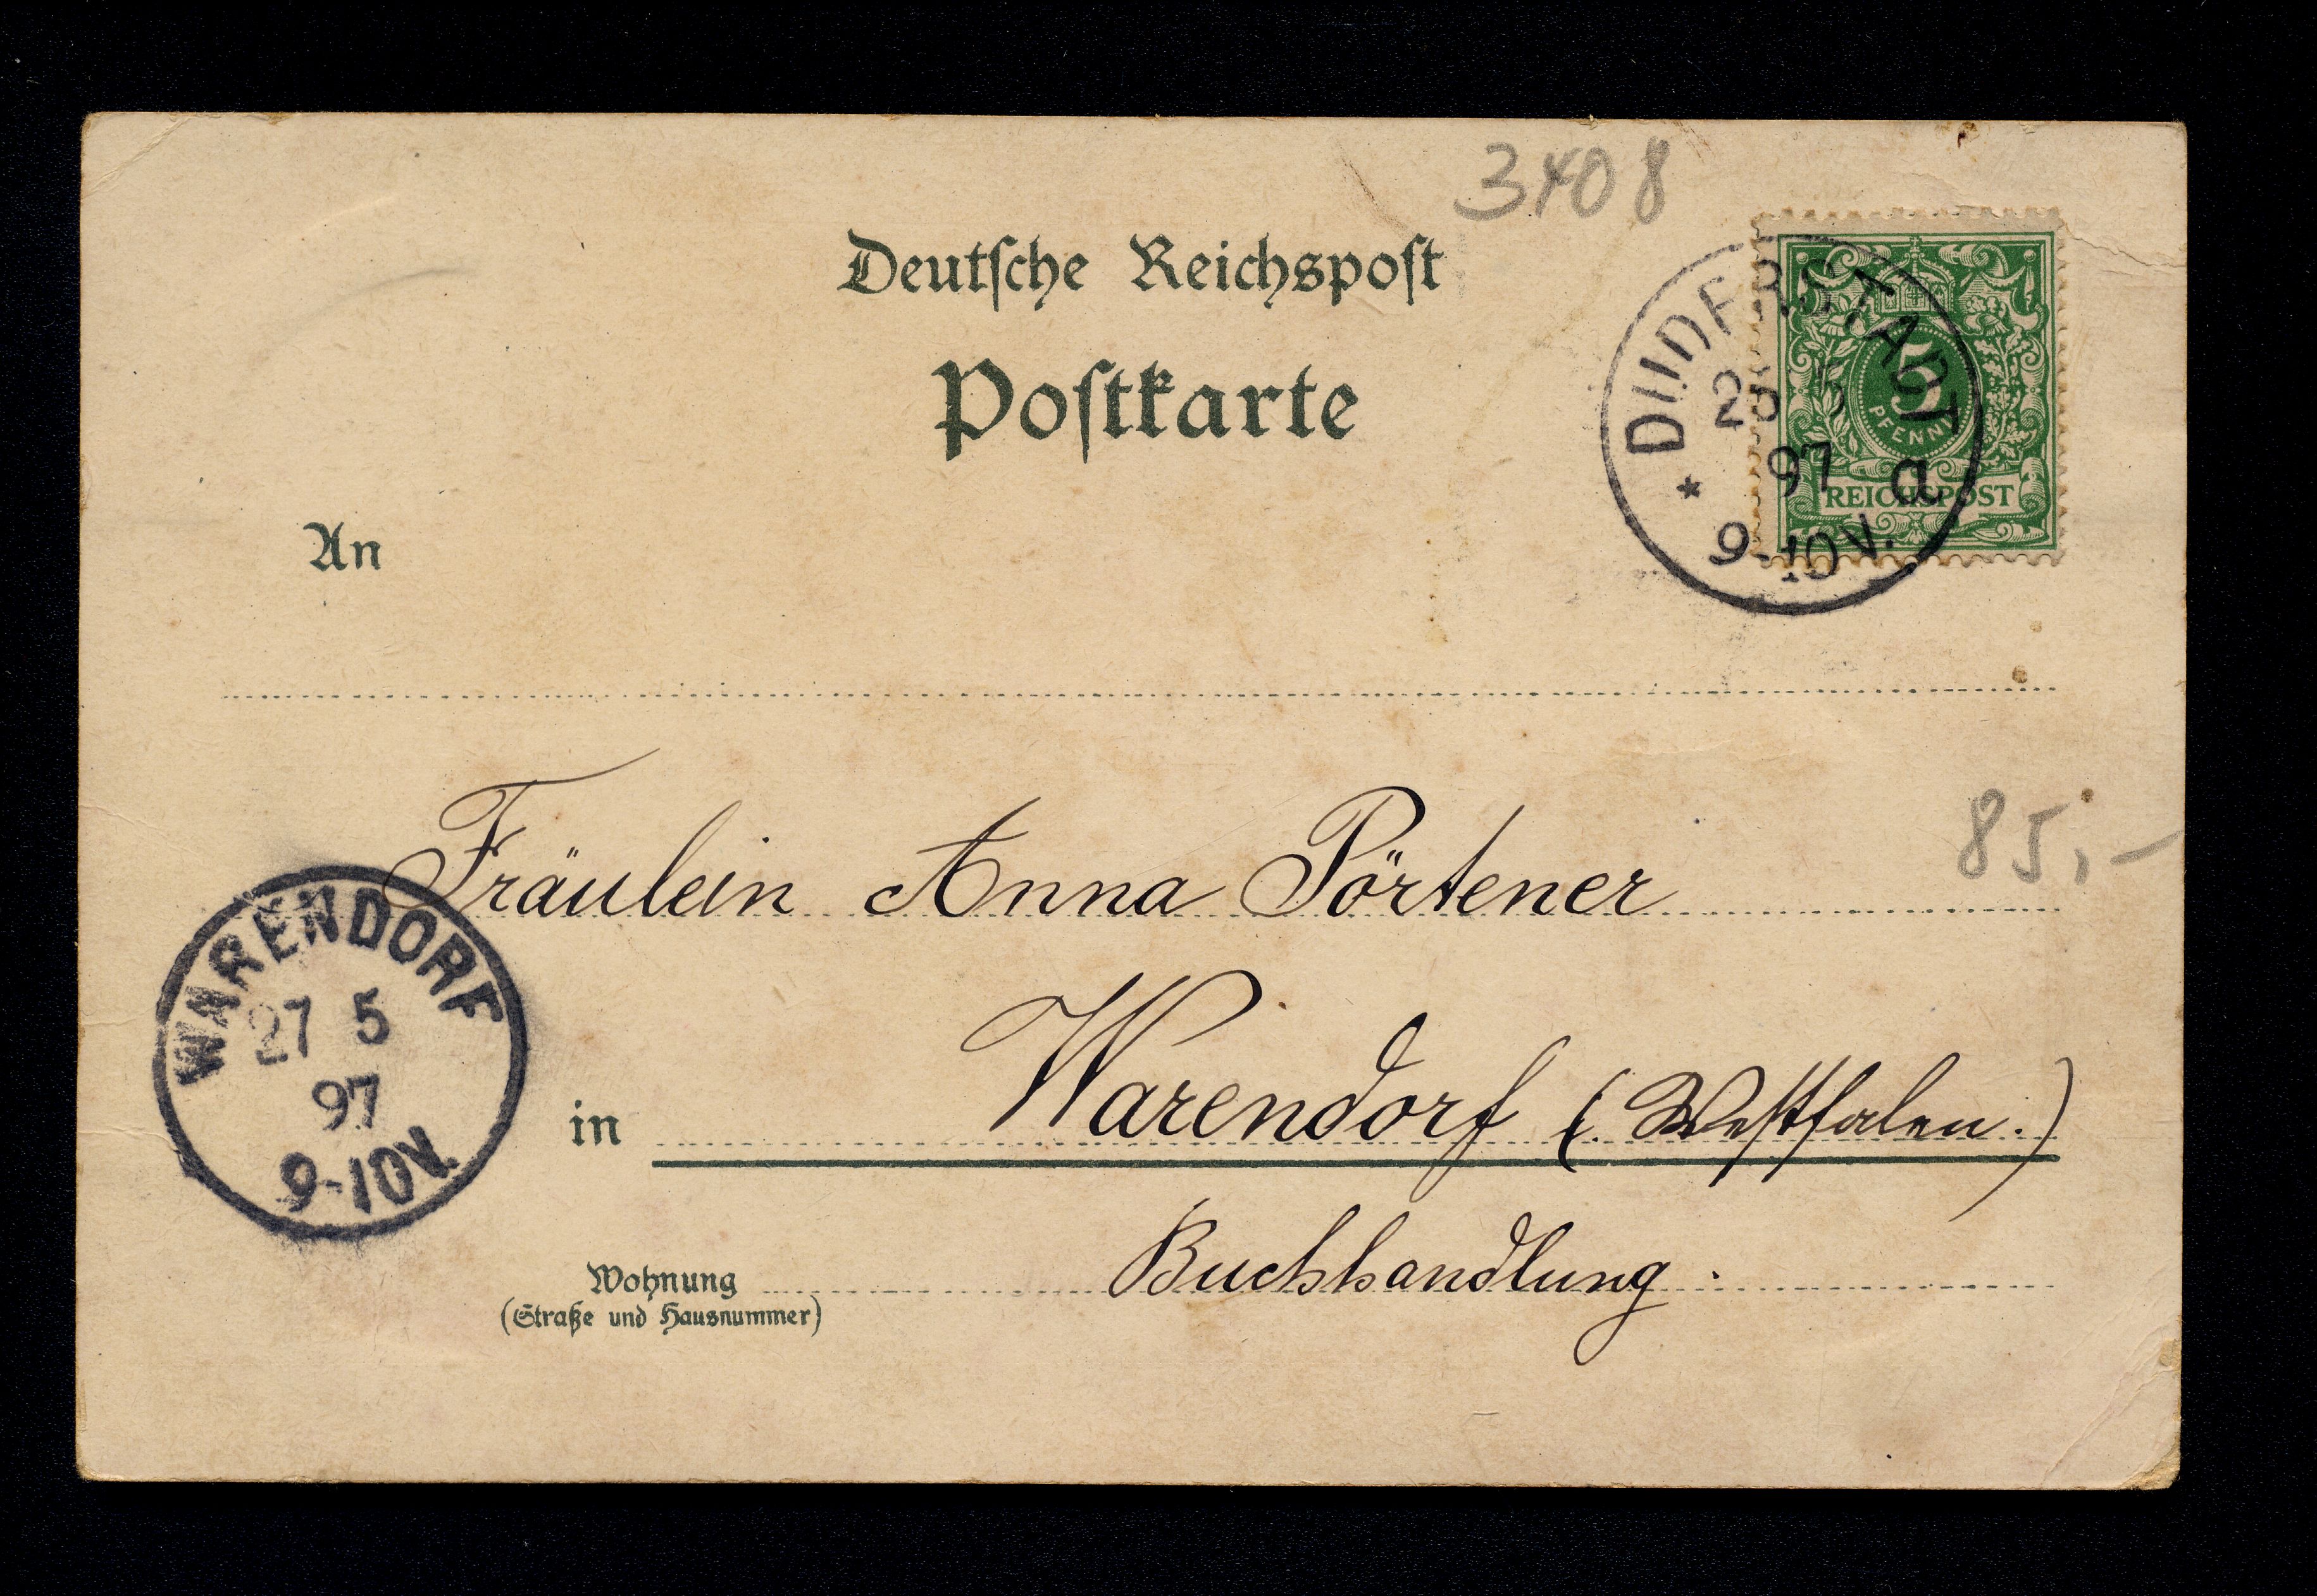 3408
Deutsche Reichspost
Postkarte
DUDERSTADT
5
PFENNIG
25 5
97 a
* 9-10V.
REICHSPOST
An
Fräulein Anna Pörtener
85,-
WARENDORF
27 5
97
9-10V.
in Warendorf (Westfalen.)
Wohnung Buchhandlung.
(Straße und Hausnummer)